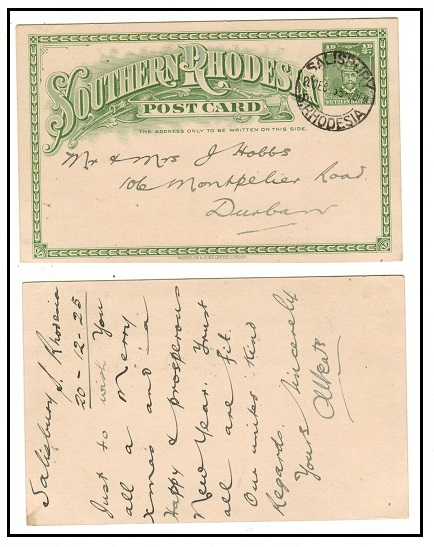 SOUTHERN RHODESIA
POST CARD
THE ADDRESS ONLY TO BE WRITTEN ON THIS SIDE.
½D ½D
SOUTHERN
SALISBURY
S. RHODESIA
Mr & Mrs J Hobbs
106 Montpelier Road
Durban
Salisbury S. Rhodesia
20-12-25
Just to wish you
all a Merry
xmas and a
Happy & prosperous
New Year. Trust
all are fit.
One unites kind
Regards.
Yours Sincerely